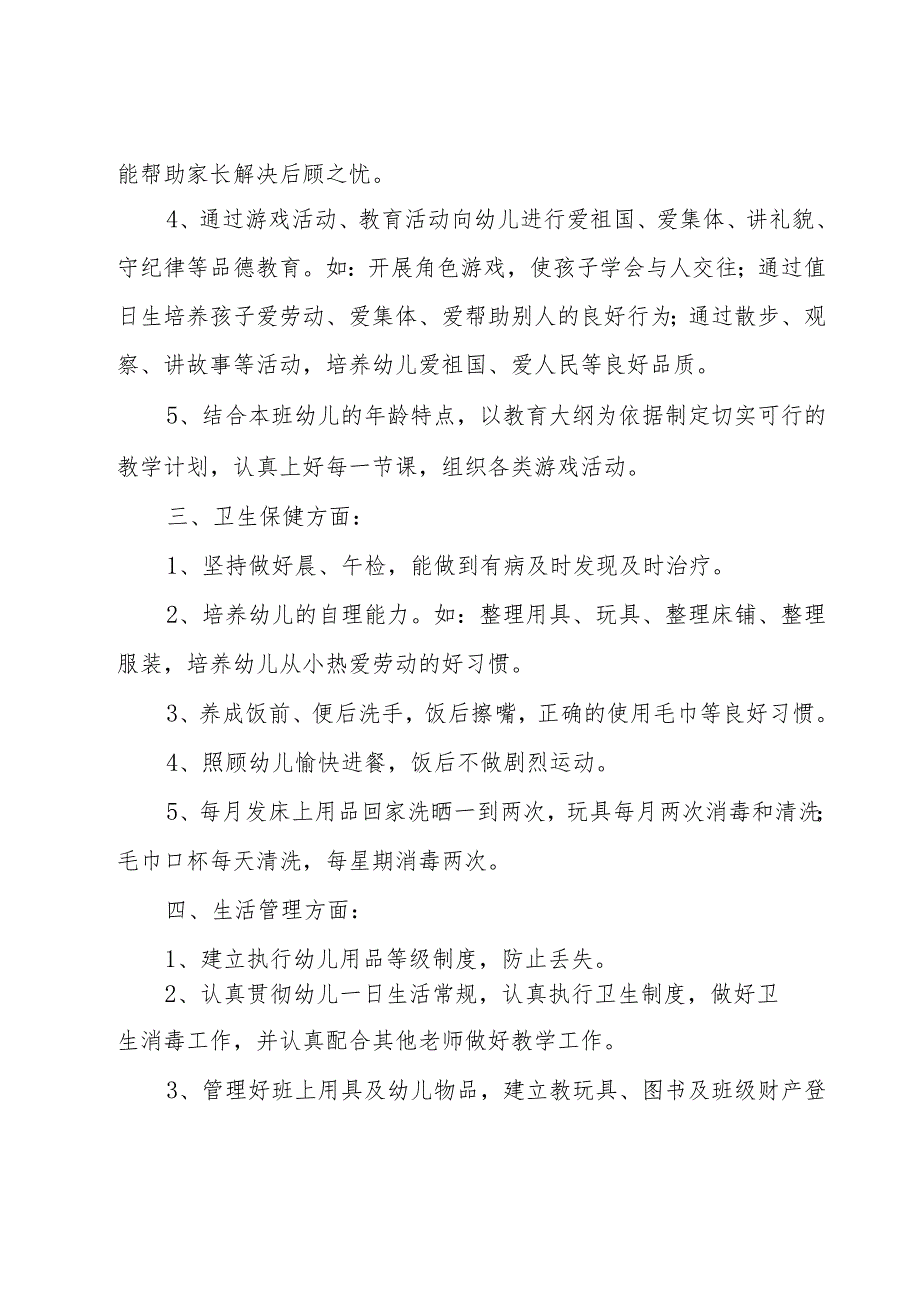 能帮助家长解决后顾之忧。
4、通过游戏活动、教育活动向幼儿进行爱祖国、爱集体、讲礼貌、
守纪律等品德教育。如：开展角色游戏，使孩子学会与人交往；通过值
日生培养孩子爱劳动、爱集体、爱帮助别人的良好行为；通过散步、观
察、讲故事等活动，培养幼儿爱祖国、爱人民等良好品质。
5、结合本班幼儿的年龄特点，以教育大纲为依据制定切实可行的
教学计划，认真上好每一节课，组织各类游戏活动。
三、卫生保健方面：
1、坚持做好晨、午检，能做到有病及时发现及时治疗。
2、培养幼儿的自理能力。如：整理用具、玩具、整理床铺、整理
服装，培养幼儿从小热爱劳动的好习惯。
3、养成饭前、便后洗手，饭后擦嘴，正确的使用毛巾等良好习惯。
4、照顾幼儿愉快进餐，饭后不做剧烈运动。
5、每月发床上用品回家洗晒一到两次，玩具每月两次消毒和清洗；
毛巾口杯每天清洗，每星期消毒两次。
四、生活管理方面：
1、建立执行幼儿用品等级制度，防止丢失。
2、认真贯彻幼儿一日生活常规，认真执行卫生制度，做好卫
生消毒工作，并认真配合其他老师做好教学工作。
3、管理好班上用具及幼儿物品，建立教玩具、图书及班级财产登